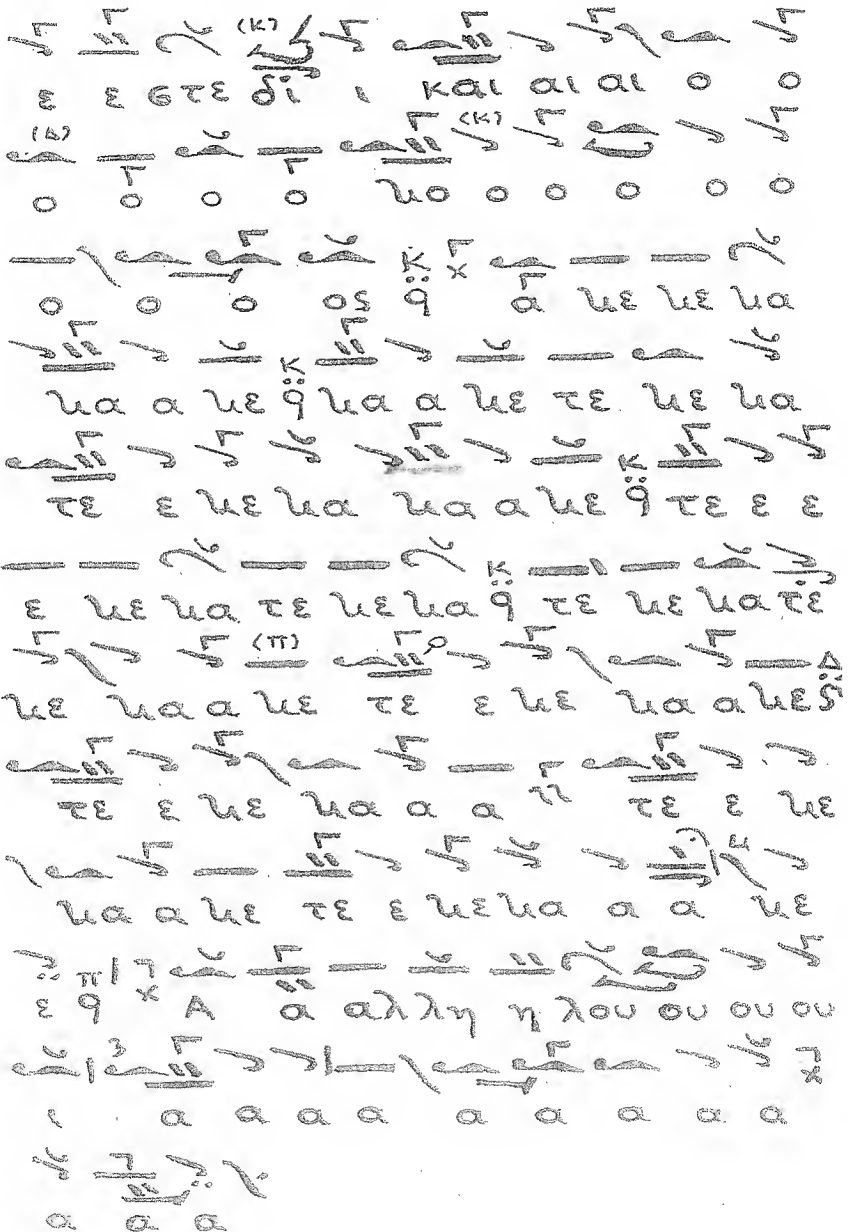 (Κ)
ε ε στε δι ι και αι αι ο ο
(Δ) (Κ)
ο ο ο ο κο ο ο ο ο ο
ο ο ο ος Κ α κε κε κα
κα α κε Κ κα α κε τε κε κα
τε ε κε κα κα α κε Κ τε ε ε
ε κε κα τε κε κα Κ τε κε κα τε
(π)
κε κα α κε τε ε κε κα α κε Δ
τε ε κε κα α α τε ε κε
κα α κε τε ε κε κα α α κε
ε π Α α αλλη η λου ου ου ου
ι α α α α α α α α α
α α α